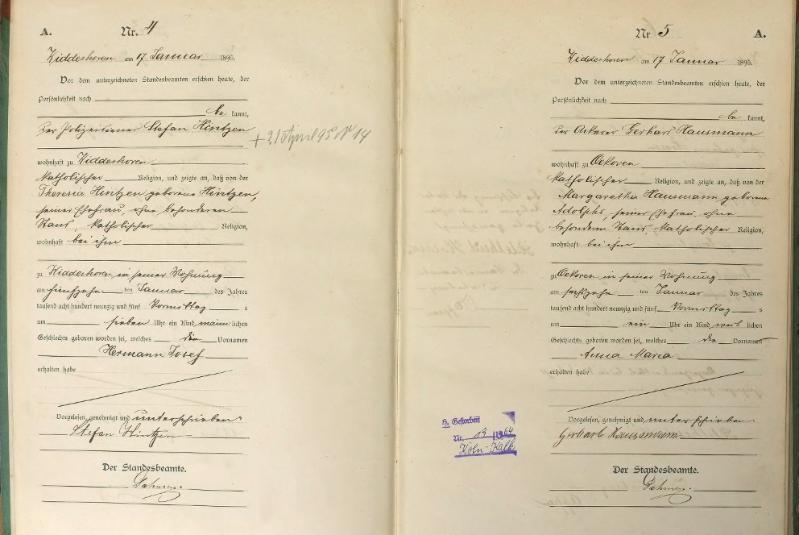 A.
Nr. 4
Widdeshoven am 17 Januar 1895.
Vor dem unterzeichneten Standesbeamten erschien heute, der
Persönlichkeit nach
be kannt,
der Polizeidiener Stefan Hintzen
wohnhaft zu Widdeshoven
katholischer Religion, und zeigte an, daß von der
Theresia Hintzen geborene Hintzen,
seiner Ehefrau, ohne besonderen
Stand, katholischer Religion,
wohnhaft bei ihm
zu Widdeshoven in seiner Wohnung
am fünfzehn ten Januar des Jahres
tausend acht hundert neunzig und fünf Vormittag s
um sieben Uhr ein Kind männlichen
Geschlechts geboren worden sei, welches die Vornamen
Hermann Josef
erhalten habe
Vorgelesen, genehmigt und unterschrieben
Stefan Hintzen
Der Standesbeamte.
+ 21 April 95 Nr 14
Nr 5
A.
Widdeshoven am 17 Januar 1895.
Vor dem unterzeichneten Standesbeamten erschien heute, der
Persönlichkeit nach
be kannt,
der Ackerer Gerhard Hausmann
wohnhaft zu Oekoven
katholischer Religion, und zeigte an, daß von der
Margaretha Hausmann geborene
Adolphs, seiner Ehefrau, ohne
besondern Stand, katholischer Religion,
wohnhaft bei ihm
zu Oekoven in seiner Wohnung
am sechszehn ten Januar des Jahres
tausend acht hundert neunzig und fünf Vormittag s
um ein Uhr ein Kind weib lichen
Geschlechts geboren worden sei, welches die Vornamen
Anna Maria
erhalten habe
Vorgelesen, genehmigt und unterschrieben
Gerhard Hausmann
Der Standesbeamte.
Gestorben
Nr. 19 1964
Köln-Kalk